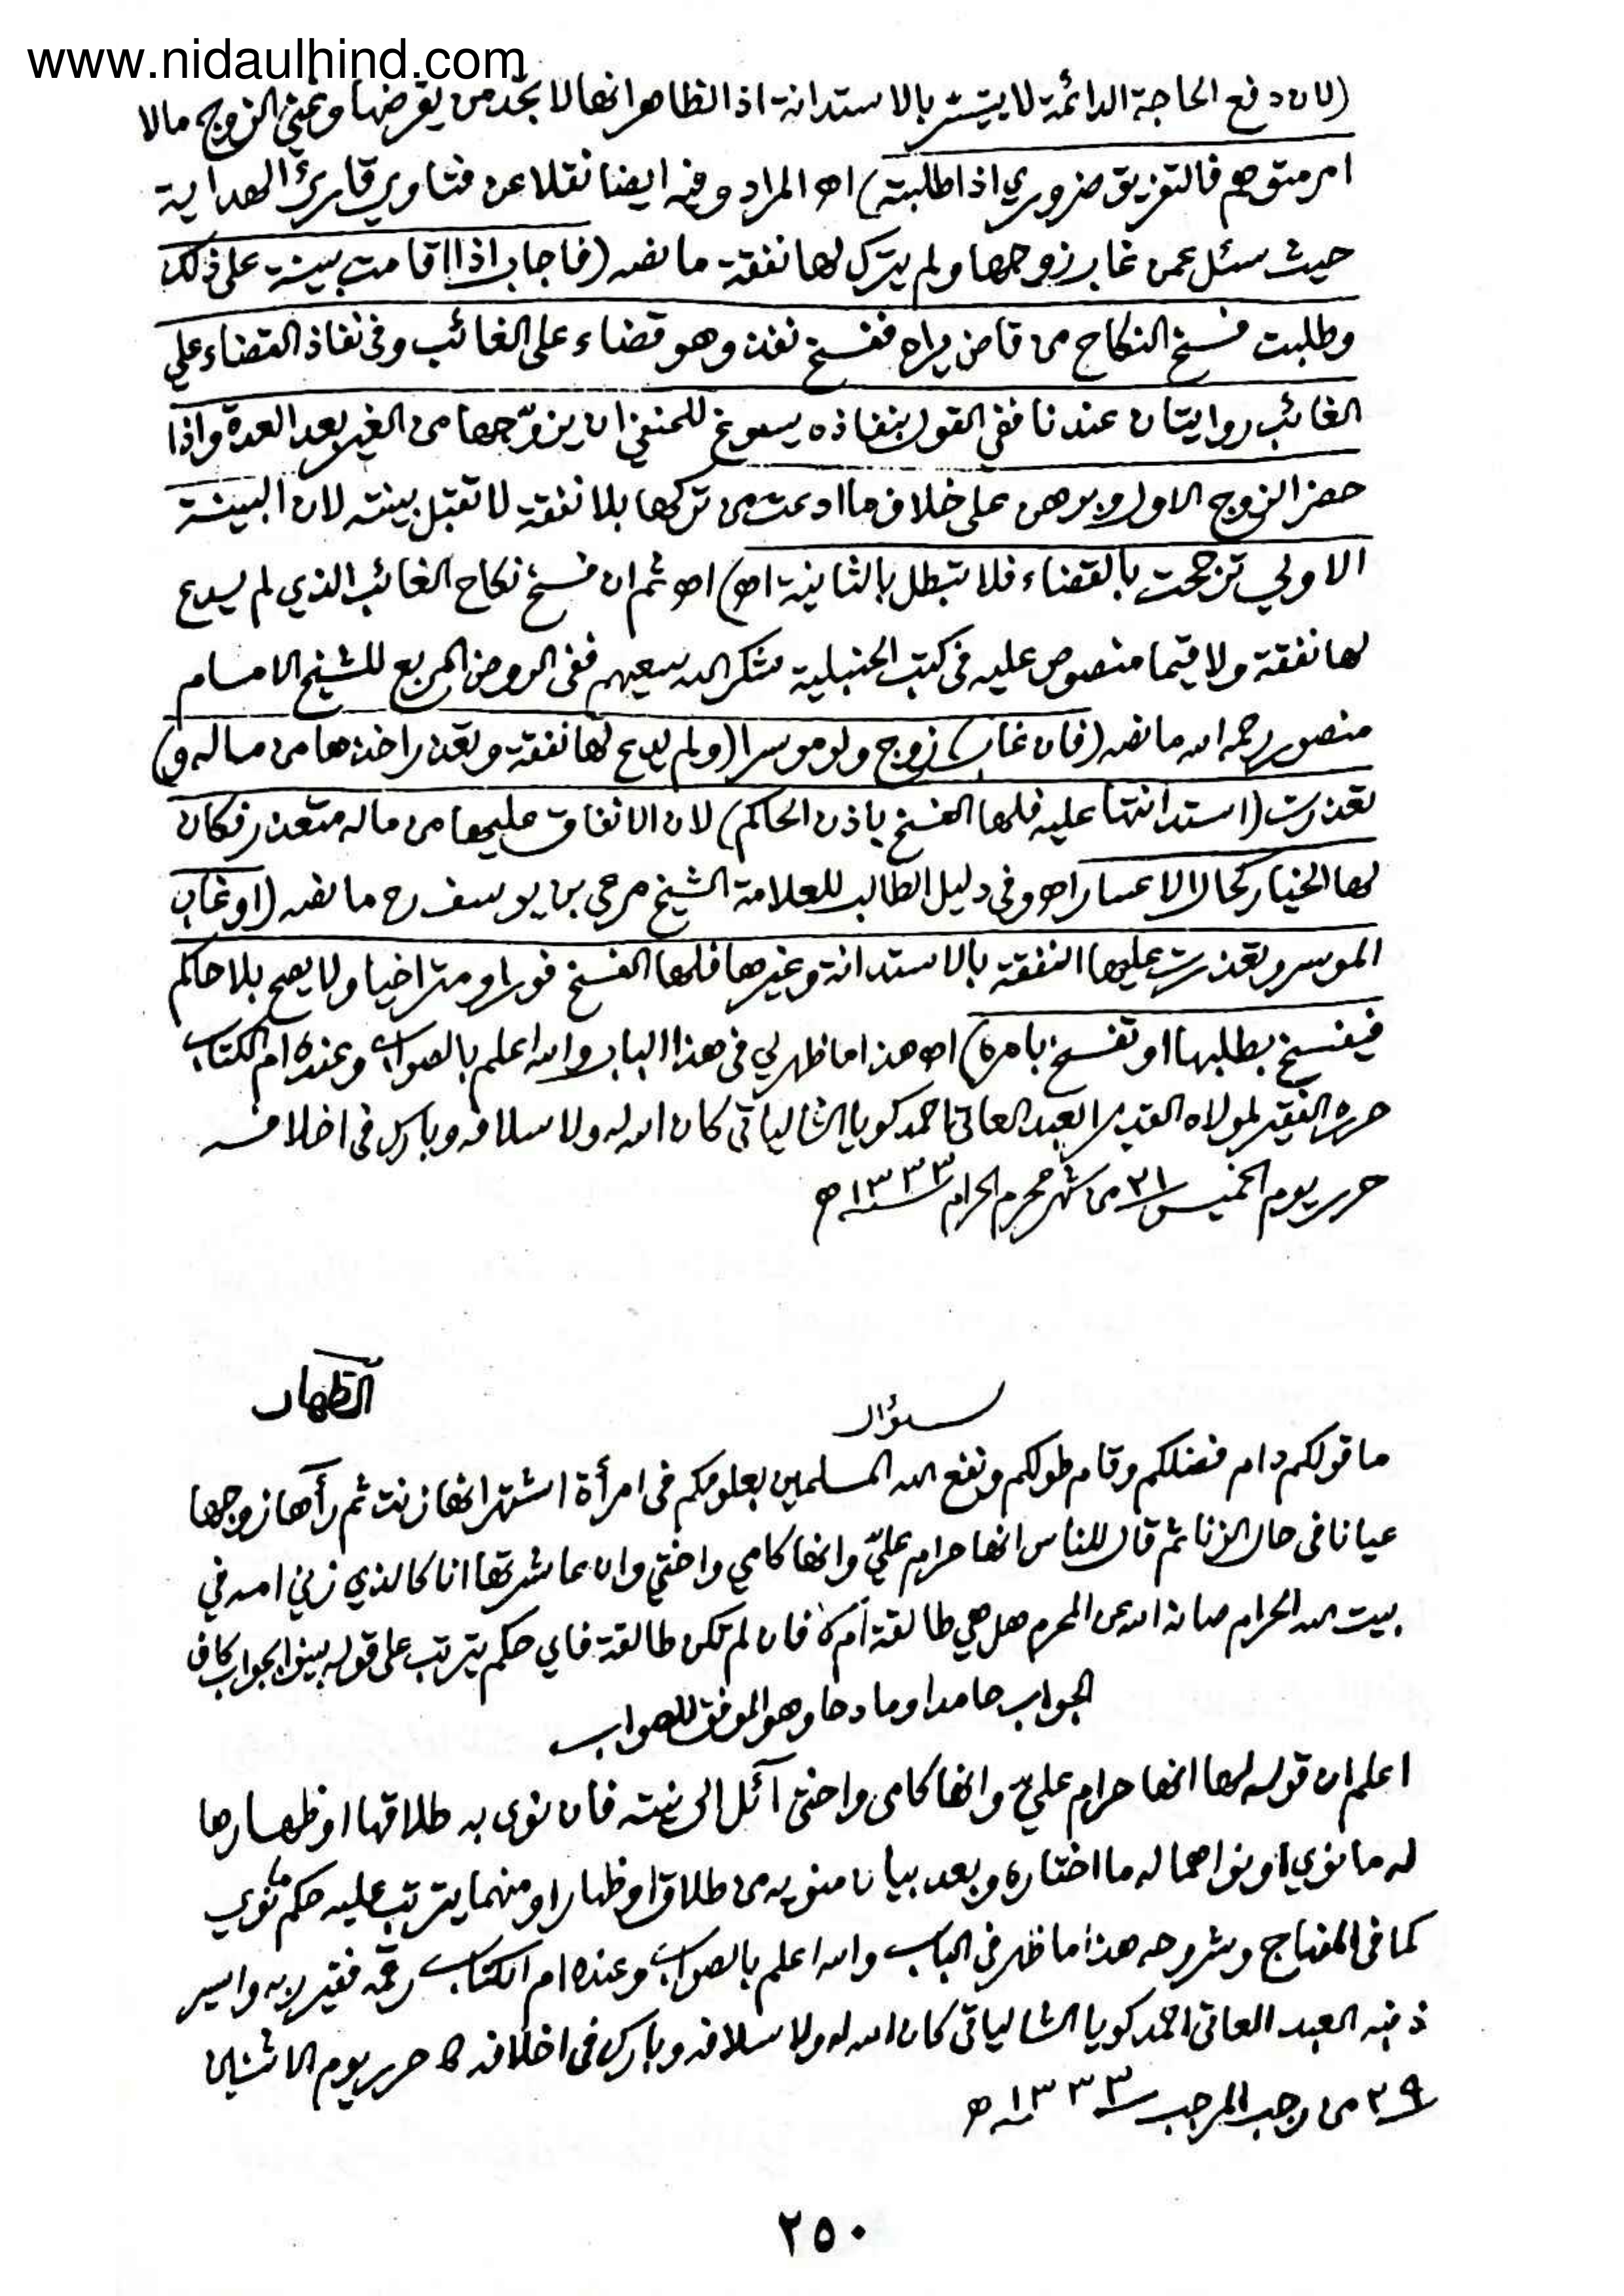 www.nidaulhind.com
(لان دفع الحاجة الدائمة لا يتيسر بالاستدانة اذ الظاهر انها لا تجد من يقرضها وغنى الزوج مالا
امر متوهم فالتفريق ضروري اذا طلبته) اه المراد وفيه ايضا نقلا عن فتاوي قارئ الهداية
حيث سئل عمن غاب زوجها ولم يترك لها نفقة ما نصه (فاجاب اذا اقامت بينة على ذلك
وطلبت فسخ النكاح من قاض يراه ففسخ نفذ وهو قضاء على الغائب وفي نفاذ القضاء علي
الغائب روايتان عندنا ففي القول بنفاذه يسوغ للحنفي ان يزوجها من الغير بعد العدة واذا
حضر الزوج الاول وبرهن على خلاف ما ادعت من تركها بلا نفقة لا تقبل بينته لان البينة
الاولي ترجحت بالقضاء فلا تبطل بالثانية اه) اه ثم ان فسخ نكاح الغائب الذي لم يدع
لها نفقة ولا قيما منصوص عليه في كتب الحنبلية شكر الله سعيهم ففى الروض المربع للشيخ الامام
منصور رحمه الله ما نصه (فان غاب) زوج ولو موسرا (ولم يدع لها نفقة وتعذر اخذها من ماله و)
تعذرت (استدانتها عليه فلها الفسخ باذن الحاكم) لان الانفاق عليها من ماله متعذر فكان
لها الخيار كحال الاعسار اه وفي دليل الطالب للعلامة الشيخ مرعي بن يوسف رح ما نصه (او غاب
الموسر وتعذرت عليها النفقة بالاستدانة وغيرها فلها الفسخ فورا ومتراخيا ولا يصح بلا حاكم
فيفسخ بطلبها او تفسخ بامره) اه هذا ما ظهر لي في هذا الباب والله اعلم بالصواب وعنده ام الكتاب
حرره الفقير لمولاه القدير العبد العاتى احمد كويا الشالياتى كان الله له ولاسلافه وبارك فى اخلافه
حرر يوم الخميس ٢١ من شهر محرم الحرام سنة ١٣٣٣ ه
الظهار
سؤال
ما قولكم دام فضلكم وقام طولكم ونفع الله المسلمين بعلومكم في امرأة اشتهر انها زنت ثم رآها زوجها
عيانا فى حال الزنا ثم قال للناس انها حرام عليّ وانها كامي واختي وان عاشرتها انا كالذي زني امه في
بيت الله الحرام صانه الله عن المحرم هل هي طالقة ام لا فان لم تكن طالقة فاي حكم يترتب على قوله بينوا بجواب كاف
الجواب حامدا ومادحا وهو الموفق للصواب
اعلم ان قوله لها انها حرام عليّ وانها كامى واختى آئل الى نيته فان نوى به طلاقها او ظهارها
له ما نوي او نواهما له ما اختاره وبعد بيان منويه من طلاق او ظهار او منهما يترتب عليه حكم ما نوي
كما فى المنهاج وشروحه هذا ما ظهر في الباب والله اعلم بالصواب وعنده ام الكتاب رقمه فقير ربه واسير
ذنبه العبد العاتى احمد كويا الشالياتى كان الله له ولاسلافه وبارك فى اخلافه حرر يوم الاثنين
٢٩ من رجب المرجب سنة ١٣٣٣ ه
٢٥٠